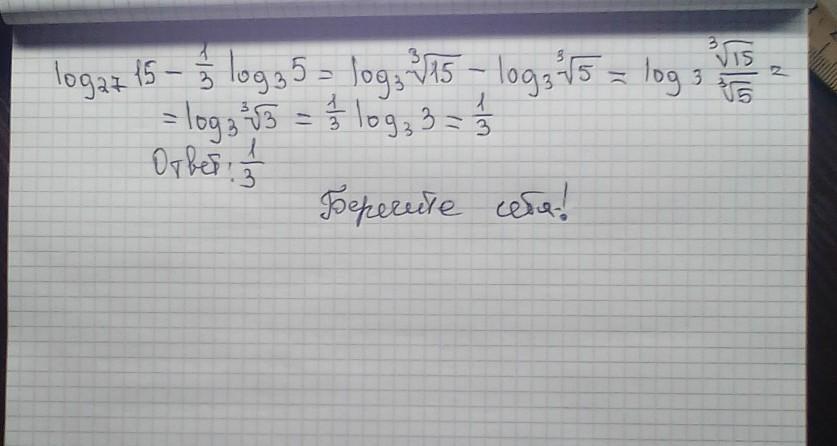 log₂₇ 15 − 1/3 log₃ 5 = log₃ ∛15 − log₃ ∛5 = log₃ ∛15/∛5 =
= log₃ ∛3 = 1/3 log₃ 3 = 1/3
Ответ: 1/3
Берегите себя!